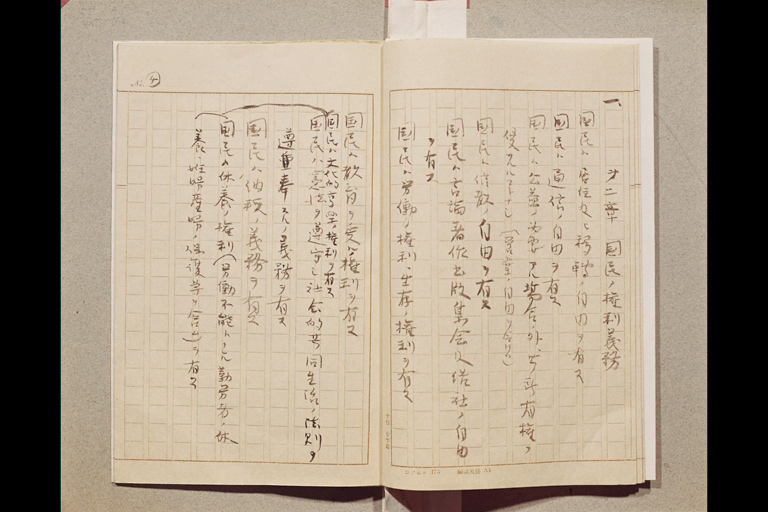 一、
第二章 国民ノ権利義務
国民ハ居住及ビ移轉ノ自由ヲ有ス
国民ハ通信ノ自由ヲ有ス
国民ハ公益ノ必要アル場合ノ外、所有権ヲ
侵サルルコトナシ（営業ノ自由ヲ含ム）
国民ハ信教ノ自由ヲ有ス
国民ハ言論著作出版集会及結社ノ自由
ヲ有ス
国民ハ労働ノ権利、生存ノ権利ヲ有ス
国民ハ教育ヲ受クル権利ヲ有ス
国民ハ文化的享楽ノ権利ヲ有ス
国民ハ憲法ヲ遵守シ社会的共同生活ノ法則ヲ
遵奉スルノ義務ヲ有ス
国民ハ納税ノ義務ヲ有ス
国民ハ休養ノ権利（労働不能トナレル勤労者ノ休
養、妊婦産婦ノ保護等ヲ含ム）ヲ有ス